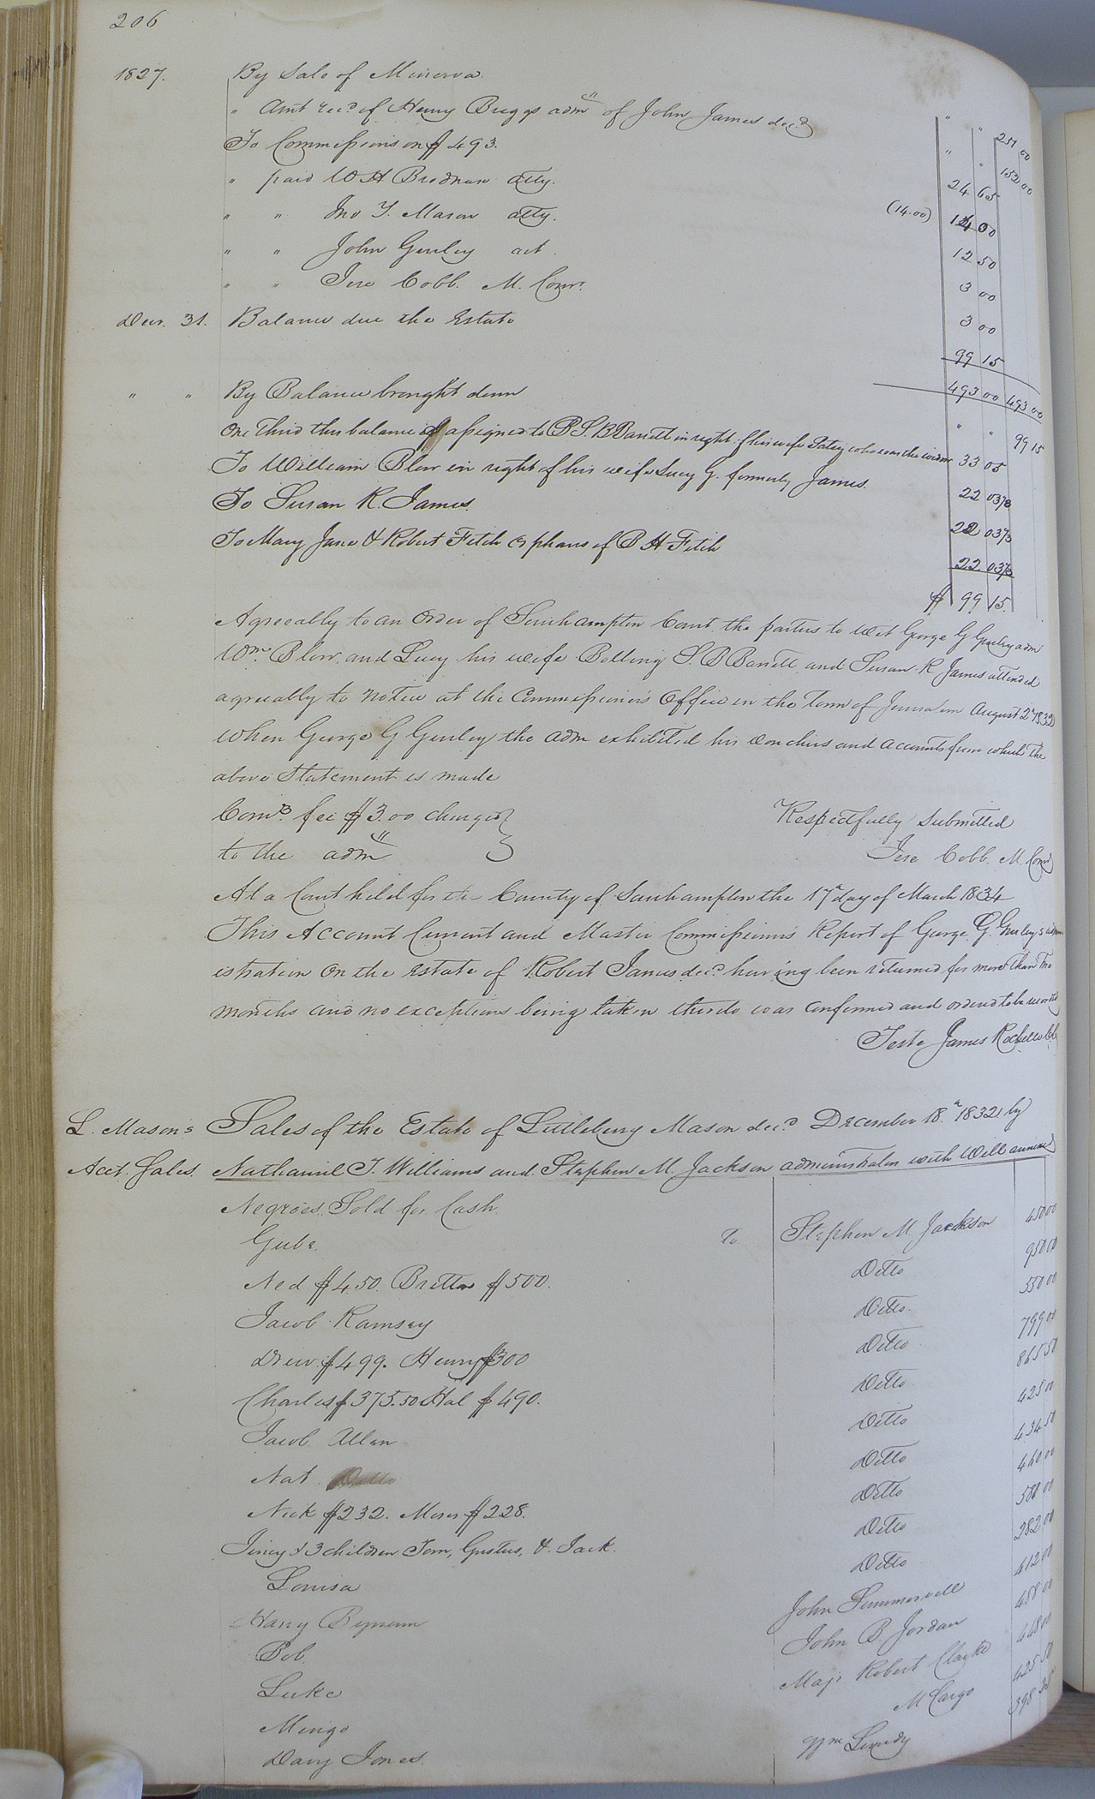 206
1827. By Sale of Minerva " " 251 00
" Amt rec.d of Henry Briggs admr of John James dec.d " " 152 00
To Commissions on $493. 24 65
" paid W H Brodnax atty. (14.00) 14 00
" " Jno Y. Mason atty. 12 50
" " John Gurley act. 3 00
" " Jere Cobb M. Comr. 3 00
Decr. 31. Balance due the Estate 99 15
493 00 493 00
" " By Balance brought down " " 99 15
One Third this balance assigned to B. S. B Barrett in right of his wife Patsy who was the widow 33 05
To William Blow in right of his wife Lucy G. formerly James. 22 03⅓
To Susan R. James. 22 03⅓
To Mary Jane & Robert Fitch Orphans of B H Fitch 22 03⅓
$ 99 15.
Agreeably to an Order of Southampton Court the parties to Wit George G Gurley adm
Wm. Blow and Lucy his wife Bolling S. B Barrett and Susan R James attended
agreeably to Notice at the Commissioner's Office in the Town of Jerusalem August 2d 1832
When George G Gurley the adm exhibited his vouchers and accounts from which the
above Statement is made
Comrs. fee $3.00 charged } Respectfully Submitted
to the admr } Jere Cobb. M. Comr
At a Court held for the County of Southampton the 17th day of March 1834
This Account Current and Master Commissioner's Report of George G. Gurley's admin
istration on the Estate of Robert James dec.d having been returned for more than two
months and no exceptions being taken thereto was confirmed and ordered to be recorded
Teste James Rochelle Ck
L. Mason's Sales of the Estate of Littleberry Mason dec.d December 18th 1832 by
Acct. Sales. Nathaniel T. Williams and Stephen M. Jackson administrators with Will annexed
Negroes Sold for Cash
Gube To Stephen M. Jackson 450 00
Ned $450. Britton $500. Ditto 950 00
Jacob Ramsey Ditto. 550 00
Drew $499. Henry $300 Ditto 799 00
Charles $375.50 Hal $490. Ditto 865 50
Jacob Allen Ditto 425 00
Nat Ditto 434 50
Nick $232. Moses $228. Ditto 460 00
Jincy & 3 children Tom, Gustus, & Jack. Ditto 500 00
Louisa Ditto 382 00
Harry Bynum John Summervell 412 00
Bob. John B. Jordan 458 00
Luke Majr Robert Clarke 448 00
Mingo McCargo 425 50
Davy Jones. Wm Lundy 398